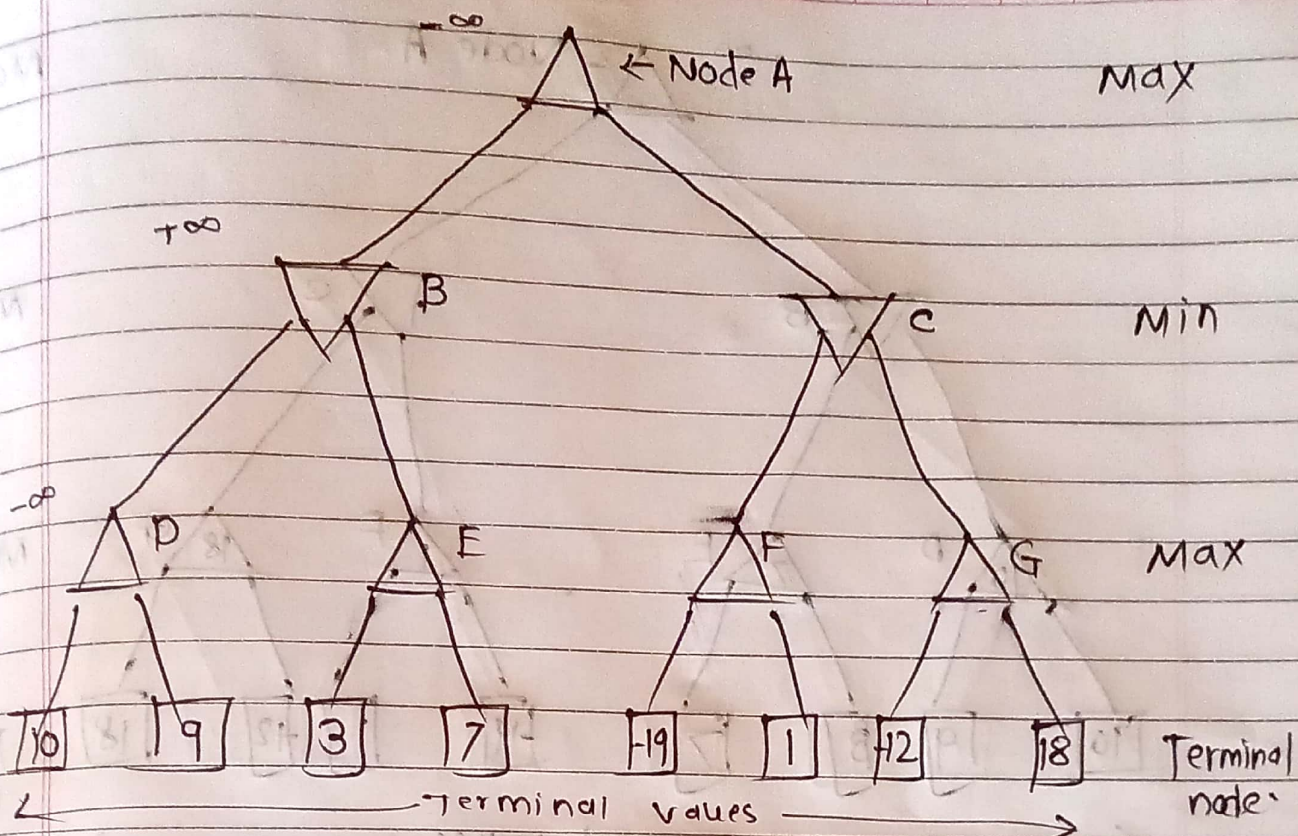 -∞
← Node A
Max
+∞
B
C
Min
-∞
D
E
F
G
Max
10 9 3 7 -19 1 -12 18 Terminal
node.
Terminal values